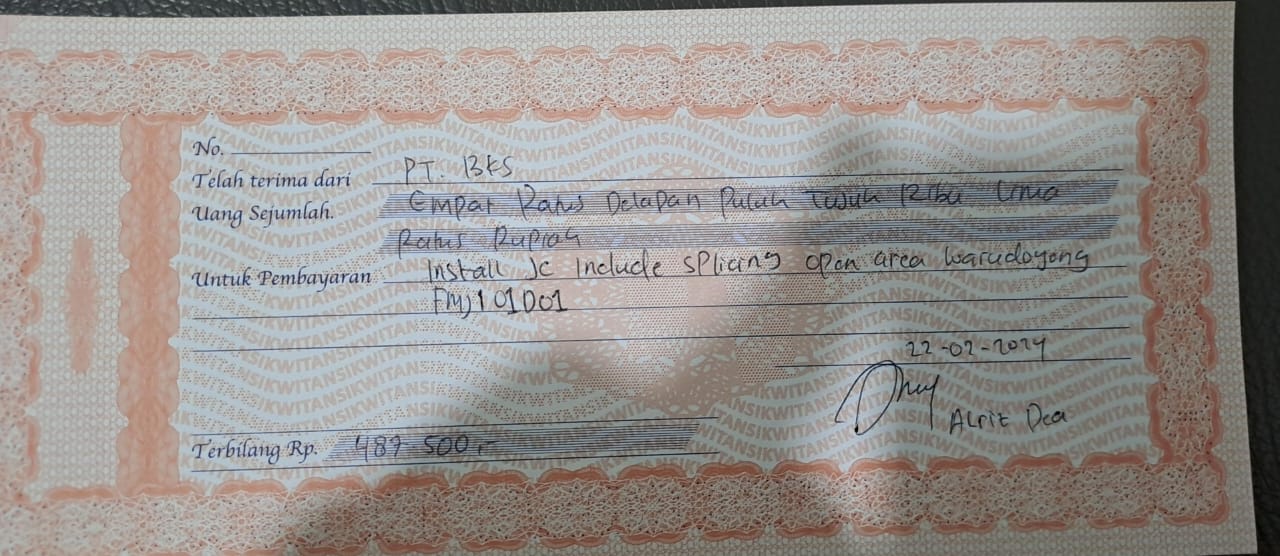 No.
Telah terima dari PT. BKS
Uang Sejumlah. Empat Ratus Delapan Puluh Tujuh Ribu Lima
Ratus Rupiah
Untuk Pembayaran Install JC Include Splicing open area Warudoyong
FMJ101D01
22-02-2024
Alrit Dea
Terbilang Rp. 487 500,-